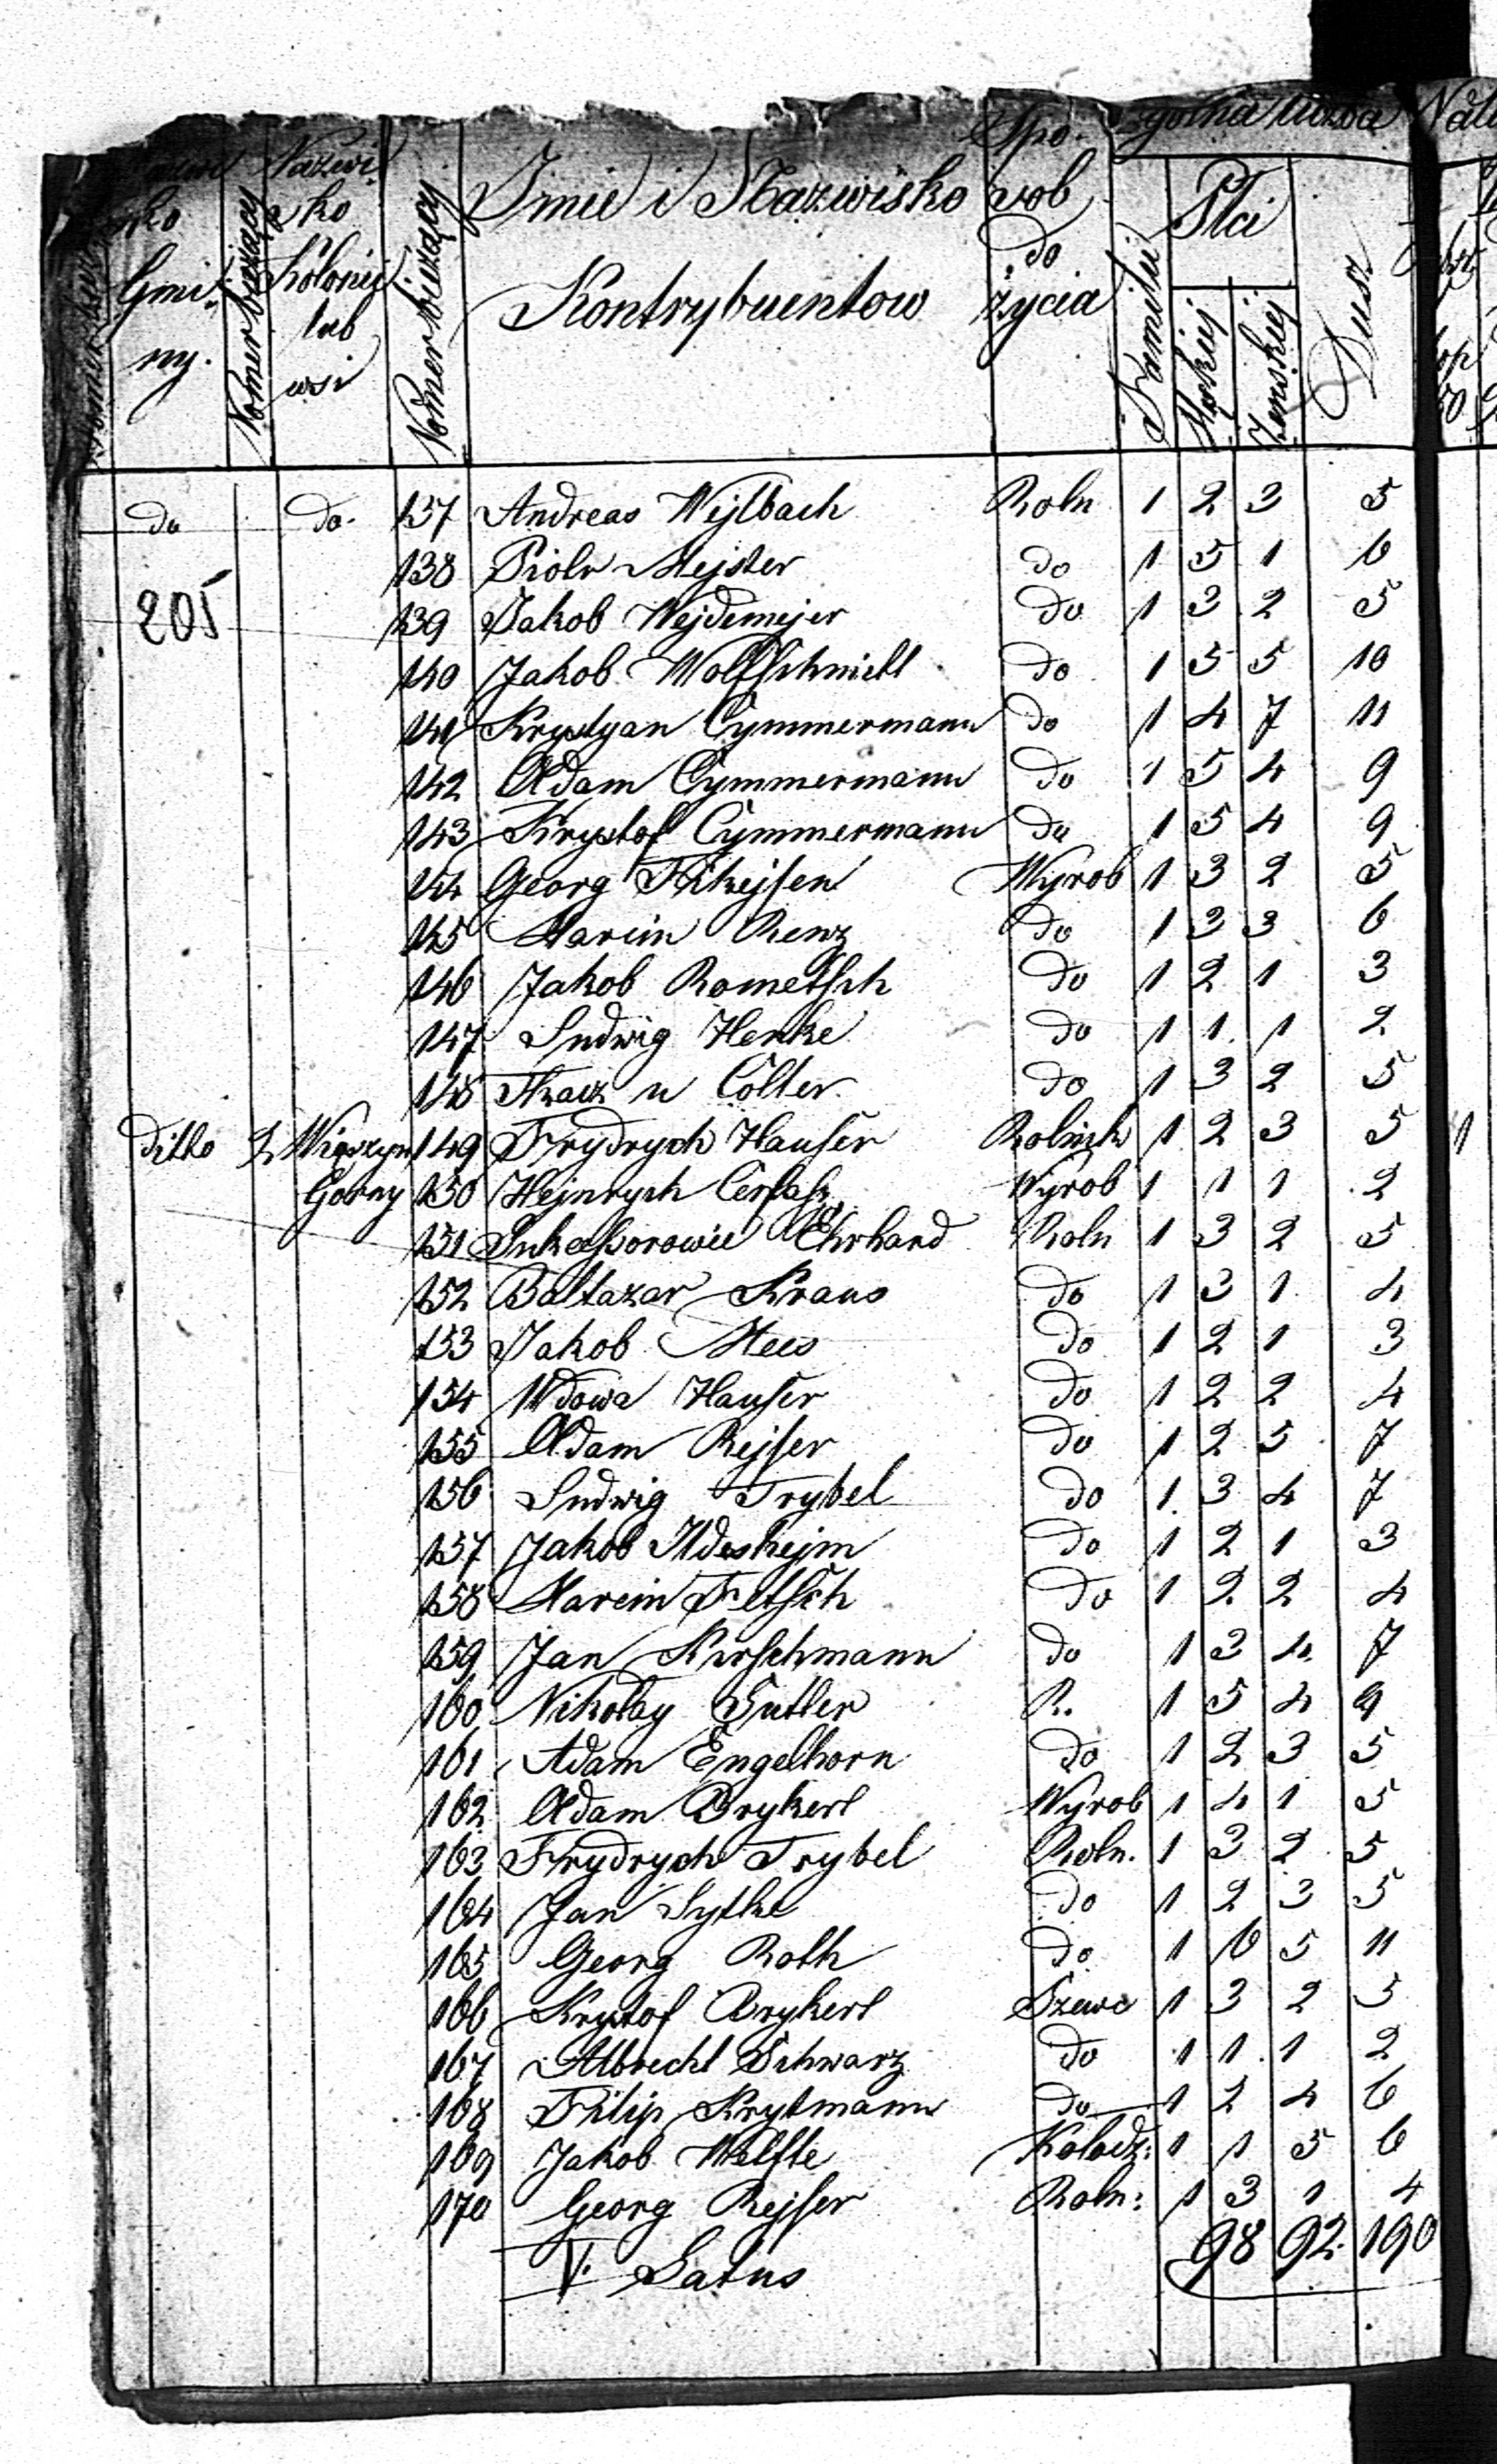 Spo- ogólna liczba
Nazwi
sko
Gmi-
ny.
Nomer bieżący
Nazwi
sko
Kolonij
lub
wsi
Nomer bieżący
Imie i Nazwisko
Kontrybuentow
sob
do
życia
Familii
Płci
Męskiej
Żenskiej
Dusz
do do. 137 Andreas Wejlbach Roln 1 2 3 5
138 Piotr Mejster do 1 5 1 6
205 139 Jakob Wejdemejer do 1 3 2 5
140 Jakob Wolfschmidt do 1 5 5 10
141 Krystyan Cymmermann do 1 4 7 11
142 Adam Cymmermann do 1 5 4 9
143 Krystof Cymmermann do 1 5 4 9
144 Georg Fikejsen Wyrob 1 3 2 5
145 Marcin Renz do 1 3 3 6
146 Jakob Rometsch do 1 2 1 3
147 Ludwig Henke do 1 1 1 2
148 Tkacz u Cölter do 1 3 2 5
ditto 2 Wiączyn 149 Frydrych Hauser Rolnik 1 2 3 5 1
Gorny 150 Hejnrych Cerfass Wyrob 1 1 1 2
151 Sukcessorowie Ehrhard Roln 1 3 2 5
152 Baltazar Kraus do 1 3 1 4
153 Jakob Mees do 1 2 1 3
154 Wdowa Hauser do 1 2 2 4
155 Adam Rejser do 1 2 5 7
156 Ludwig Trybel do 1 3 4 7
157 Jakob Ildeshejm do 1 2 1 3
158 Marcin Fetsch do 1 2 2 4
159 Jan Kirschmann do 1 3 4 7
160 Nikolay Sutler R. 1 5 4 9
161 Adam Engelhorn do 1 2 3 5
162 Adam Brykert Wyrob 1 4 1 5
163 Frydrych Trybel Roln. 1 3 2 5
164 Jan Lytke do 1 2 3 5
165 Georg Roth do 1 6 5 11
166 Krystof Brykert Szewc 1 3 2 5
167 Albrecht Schwarz do 1 1 1 2
168 Filip Krytmann do 1 2 4 6
169 Jakob Welfle Kołodz: 1 1 5 6
170 Georg Rejser Roln: 1 3 1 4
V. Latus 98 92. 190